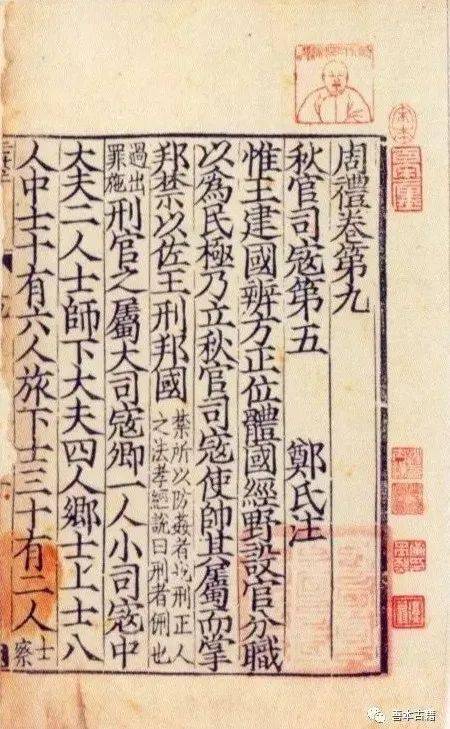 周禮卷第九
秋官司寇第五　鄭氏注
惟王建國辨方正位體國經野設官分職
以為民極乃立秋官司寇使帥其屬而掌
邦禁以佐王刑邦國禁所以防姦者也刑正人之法孝經說曰刑者侀也
過出罪施刑官之屬大司寇卿一人小司寇中
大夫二人士師下大夫四人鄉士上士八
人中士十有六人旅下士三十有二人士察
善本古籍